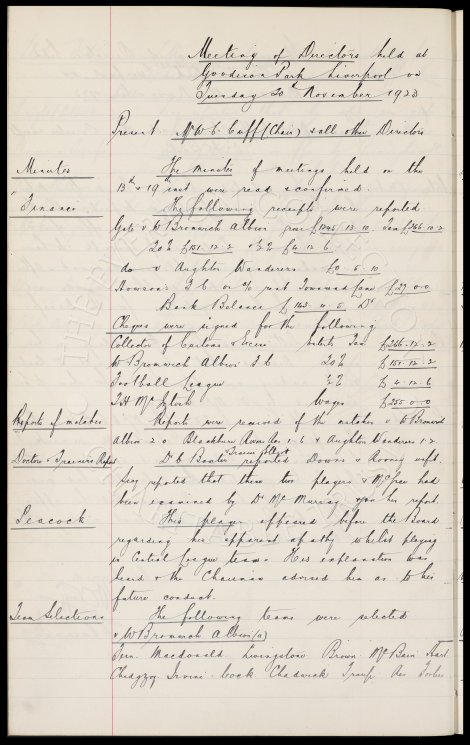 Meeting of Directors held at
Goodison Park Liverpool on
Tuesday 20th November 1923
Present Mr W. C. Cuff (Chair) & all other Directors
Minutes
The minutes of meetings held on the
13th & 19th inst were read & confirmed.
Finance
The following receipts were reported
Gate v W Bromwich Albion £1245.13.10 Tax £266.12.2
20% £151.12.2 £4.12.6
do v Aughton Wanderers £0.5.10
F C on a/c £27.0.0
Bank Balance £ Dr
Cheques were signed for the following
Collector of Customs & Excise Ents Tax £266.12.2
W Bromwich Albion F C 20% £151.12.2
Football League £4.12.6
T H McIntosh Wages £255.0.0
Reports of matches
Reports were received of the matches v W Bromwich
Albion 2.0 Blackburn Rovers Res 1.6 & Aughton Wanderers 1.2
Doctors & Trainers Report
Dr C Baxter reported Downs & Rooney unfit.
reported that these two players & McCrae had
been examined by Dr Murray upon his report.
Peacock
This player appeared before the Board
regarding his apparent apathy whilst playing
in Central League team. His explanation was
heard & the Chairman advised him as to his
future conduct.
Team Selections
The following teams were selected
v W Bromwich Albion (a)
Fern. Macdonald Livingstone Brown McBain Hart
Chedgzoy Irvine Cock Chadwick Troup. Res Forbes